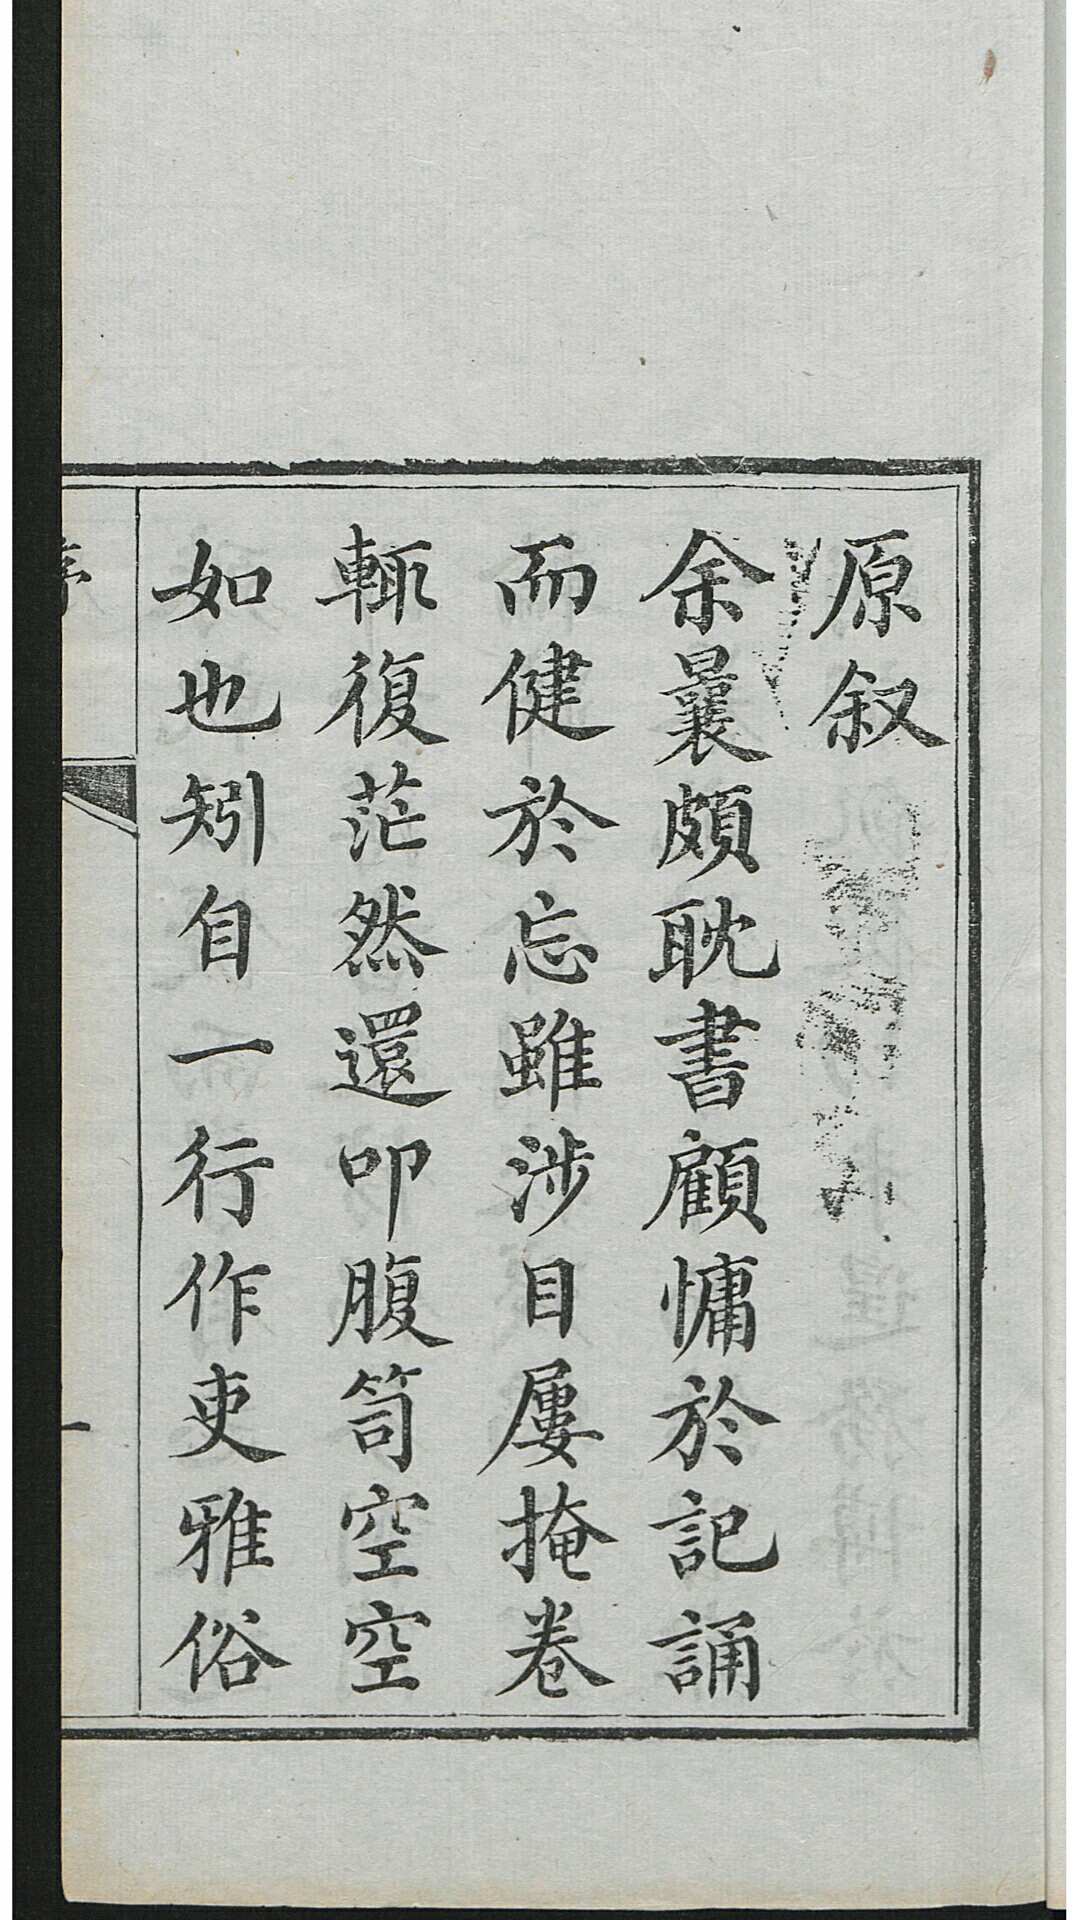 原叙
余曩頗耽書顧慵於記誦
而健於忘雖涉目屢掩卷
輒復茫然還叩腹笥空空
如也矧自一行作吏雅俗
序
一